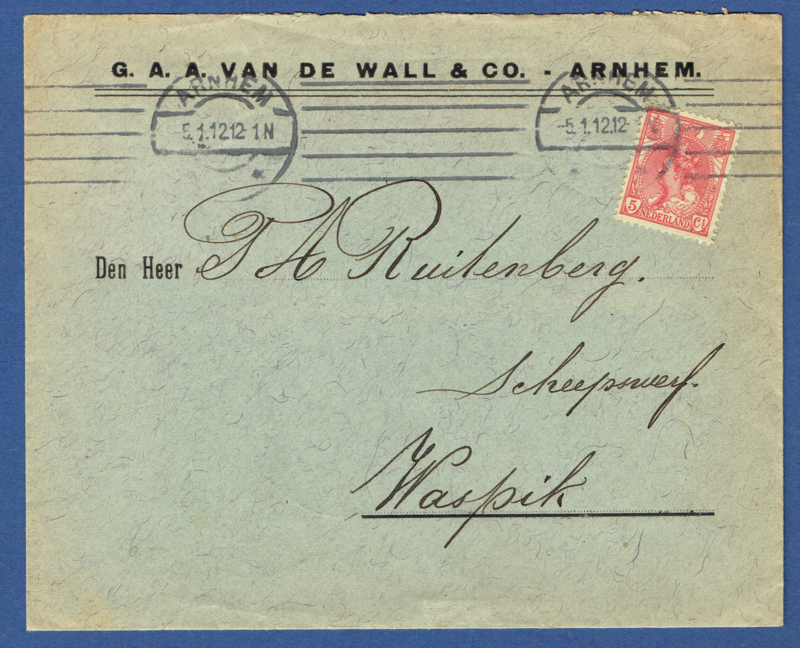 G. A. A. VAN DE WALL & CO. - ARNHEM.
ARNHEM
-5.1.12.12-1N
ARNHEM
-5.1.12.12-
5 NEDERLAND Ct
Den Heer T A Ruitenberg.
Scheepswerf.
Waspik